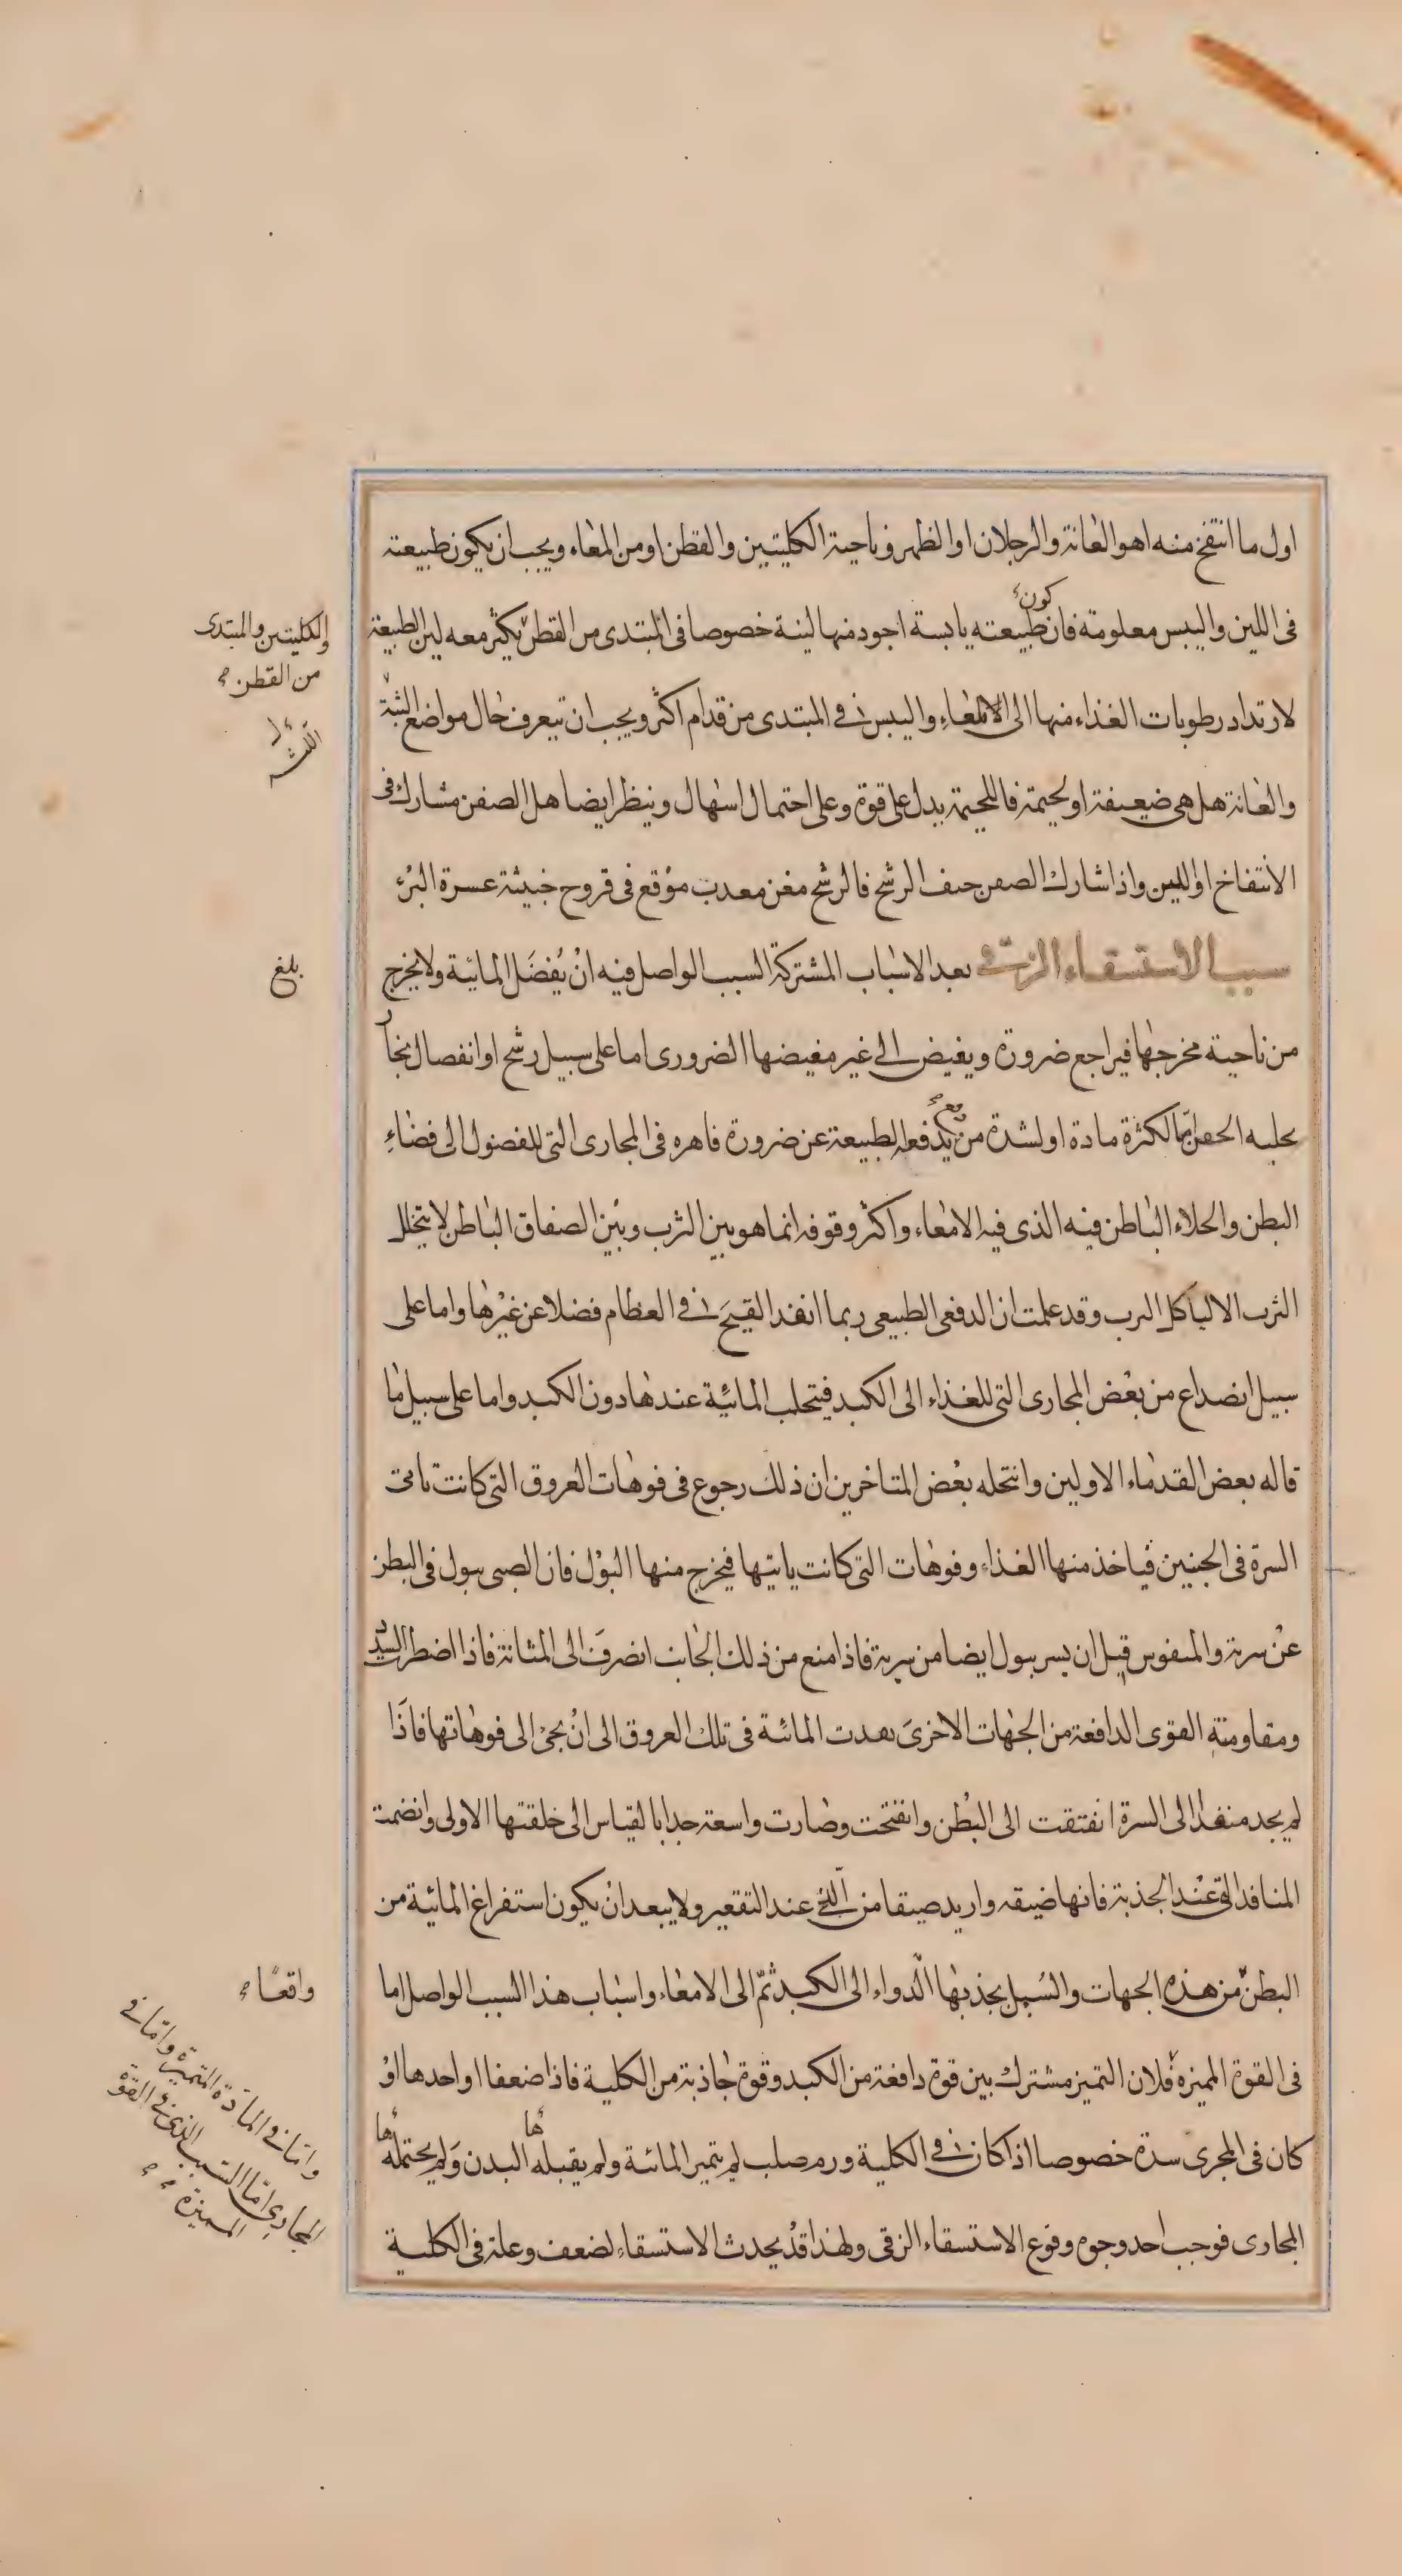 اول ما انتفخ منه اهو العانة والرجلان او الظهر وناحية الكليتين والقطن او من المعاء ويجب ان يكون طبيعته
فى اللين واليبس معلومة فان كون طبيعته يابسة اجود منها لينة خصوصا فى المبتدى من القطن يكثر معه لين الطبيعة
والكليتين والمبتدى
من القطن
لارتداد رطوبات الغذاء منها الى الامعاء واليبس فى المبتدى من قدام اكثر ويجب ان يتعرف حال مواضع الثنة
والعانة هل هى ضعيفة او لحيمة فاللحيمة يدل على قوة وعلى احتمال اسهال وينظر ايضا هل الصفن مشارك فى
الانتفاخ او لليس واذا شارك الصفن خيف الرشح فالرشح مغن معدب موقع فى قروح خبيثة عسرة البرء
سبب الاستسقاء الزقى بعد الاسباب المشتركة السبب الواصل فيه ان يفضل المائية ولا يخرج
بلغ
من ناحية مخرجها فيراجع ضرورة ويغيض الى غير مغيضها الضرورى اما على سبيل رشح او انفصال بخار
يحليه الحقن اما لكثرة مادة او لشدة من يدفعه الطبيعة عن ضرورة قاهره فى المجارى التى للفضول الى فضاء
البطن والخلاء الباطن فيه الذى فيه الامعاء واكثر وقوفه انما هو بين الثرب وبين الصفاق الباطن لا يتخلل
الثرب الا لتاكل الثرب وقد علمت ان الدفع الطبيعى ربما انفذ القيح فى العظام فضلا عن غيرها واما على
سبيل انصداع من بعض المجارى التى للغذاء الى الكبد فيتحلب المائية عندها دون الكبد واما على سبيل ما
قاله بعض القدماء الاولين وانتحله بعض المتاخرين ان ذلك رجوع فى فوهات العروق التى كانت تاتى
السرة فى الجنين فياخذ منها الغذاء وفوهات التى كانت ياتيها فيخرج منها البول فان الصبى يبول فى البطن
عن سرته والمنفوس قبل ان يسر يبول ايضا من سرته فاذا منع من ذلك الجانب انصرف الى المثانة فاذا اضطرت السدد
ومقاومتة القوى الدافعة من الجهات الاخرى نفذت المائية فى تلك العروق الى ان يجئ الى فوهاتها فاذا
لم يجد منفذا الى السرة انفتقت الى البطن وانفتحت وصارت واسعة جدا بالقياس الى خلقتها الاولى وانضمت
المنافذ التى عند الجذبة فانها ضيقه وازيد ضيقا من التى عند التقعير ولا يبعد ان يكون استفراغ المائية من
البطن من هذه الجهات والسبل يجذبها الدواء الى الكبد ثم الى الامعاء واسباب هذا السبب الواصل اما
واقعا
فى القوة المميزه فلان التميز مشترك بين قوة دافعة من الكبد وقوة جاذبة من الكلية فاذا ضعفا او احدها او
واما فى المادة المتميزه واما فى
المجارى اما السبب الذى فى القوة
المميزة
كان فى المجرى سدة خصوصا اذا كان فى الكلية ورم صلب لم يتميز المائية ولم يقبلها البدن ولم يحتملها
المجارى فوجب احد وجوه وقوع الاستسقاء الزقى ولهذا قد يحدث الاستسقاء لضعف وعلة فى الكلية